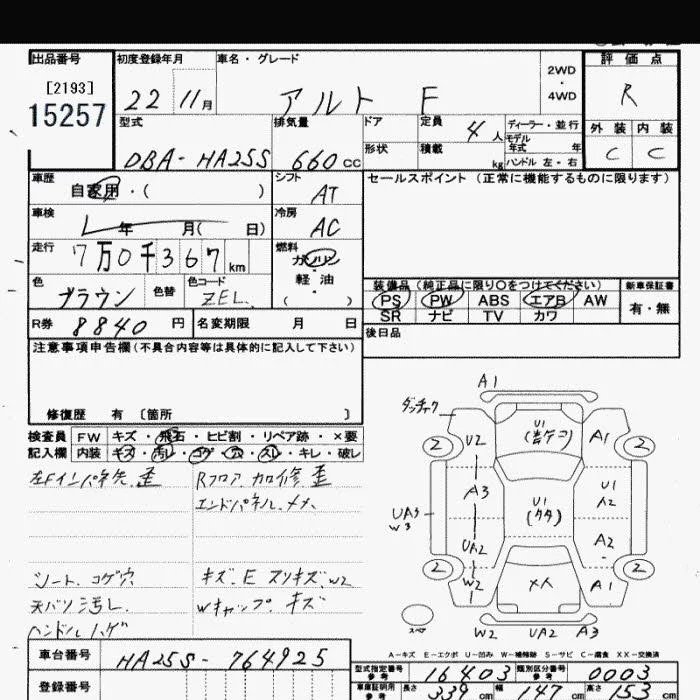 出品番号 初度登録年月 車名・グレード 評価点
[2193]
15257
22 11月 アルト F 2WD・4WD R
型式 排気量 ドア 定員 4人 ディーラー・並行 外装 内装
モデル年式 年
DBA-HA25S 660cc 形状 積載 kg ハンドル 左・右 C C
車歴 シフト セールスポイント (正常に機能するものに限ります)
自家用・( ) AT
車検 冷房
年 月( 日) AC
走行 燃料
7万0千367km ガソリン・軽油
色 色替 色コード ( )
ブラウン ZEL
装備品 (純正品に限り○をつけてください) 新車保証書
PS PW ABS エアB AW 有・無
SR ナビ TV カワ
R券 8840円 名変期限 月 日 後日品
注意事項申告欄(不具合内容等は具体的に記入して下さい)
修復歴 有 〔箇所 〕
検査員 FW キズ・飛石・ヒビ割・リペア跡・×要
記入欄 内装 キズ・汚レ・コゲ・穴・スレ・キレ・破レ
左Fインパネ先 歪 Rフロア 加修 歪
エンドパネル メメ
シート コゲ穴 キズ、E スリキズ、W2
天バリ汚レ Wキャップ キズ
ハンドルハゲ
A1
2 U2 U1 A1 2
A3 U1 U1 A2
UA3 W3
UA2 A2
2 W2 XX A1 2
スペア W2 UA2 A3
A-キズ E-エクボ U-凹み W-補修跡 S-サビ C-腐食 XX-交換済
車台番号 HA25S-764925
登録番号
型式指定番号 参考 16403 類別区分番号 参考 0003
車庫証明用 参考 長さ 339cm 幅 147cm 高さ 153cm